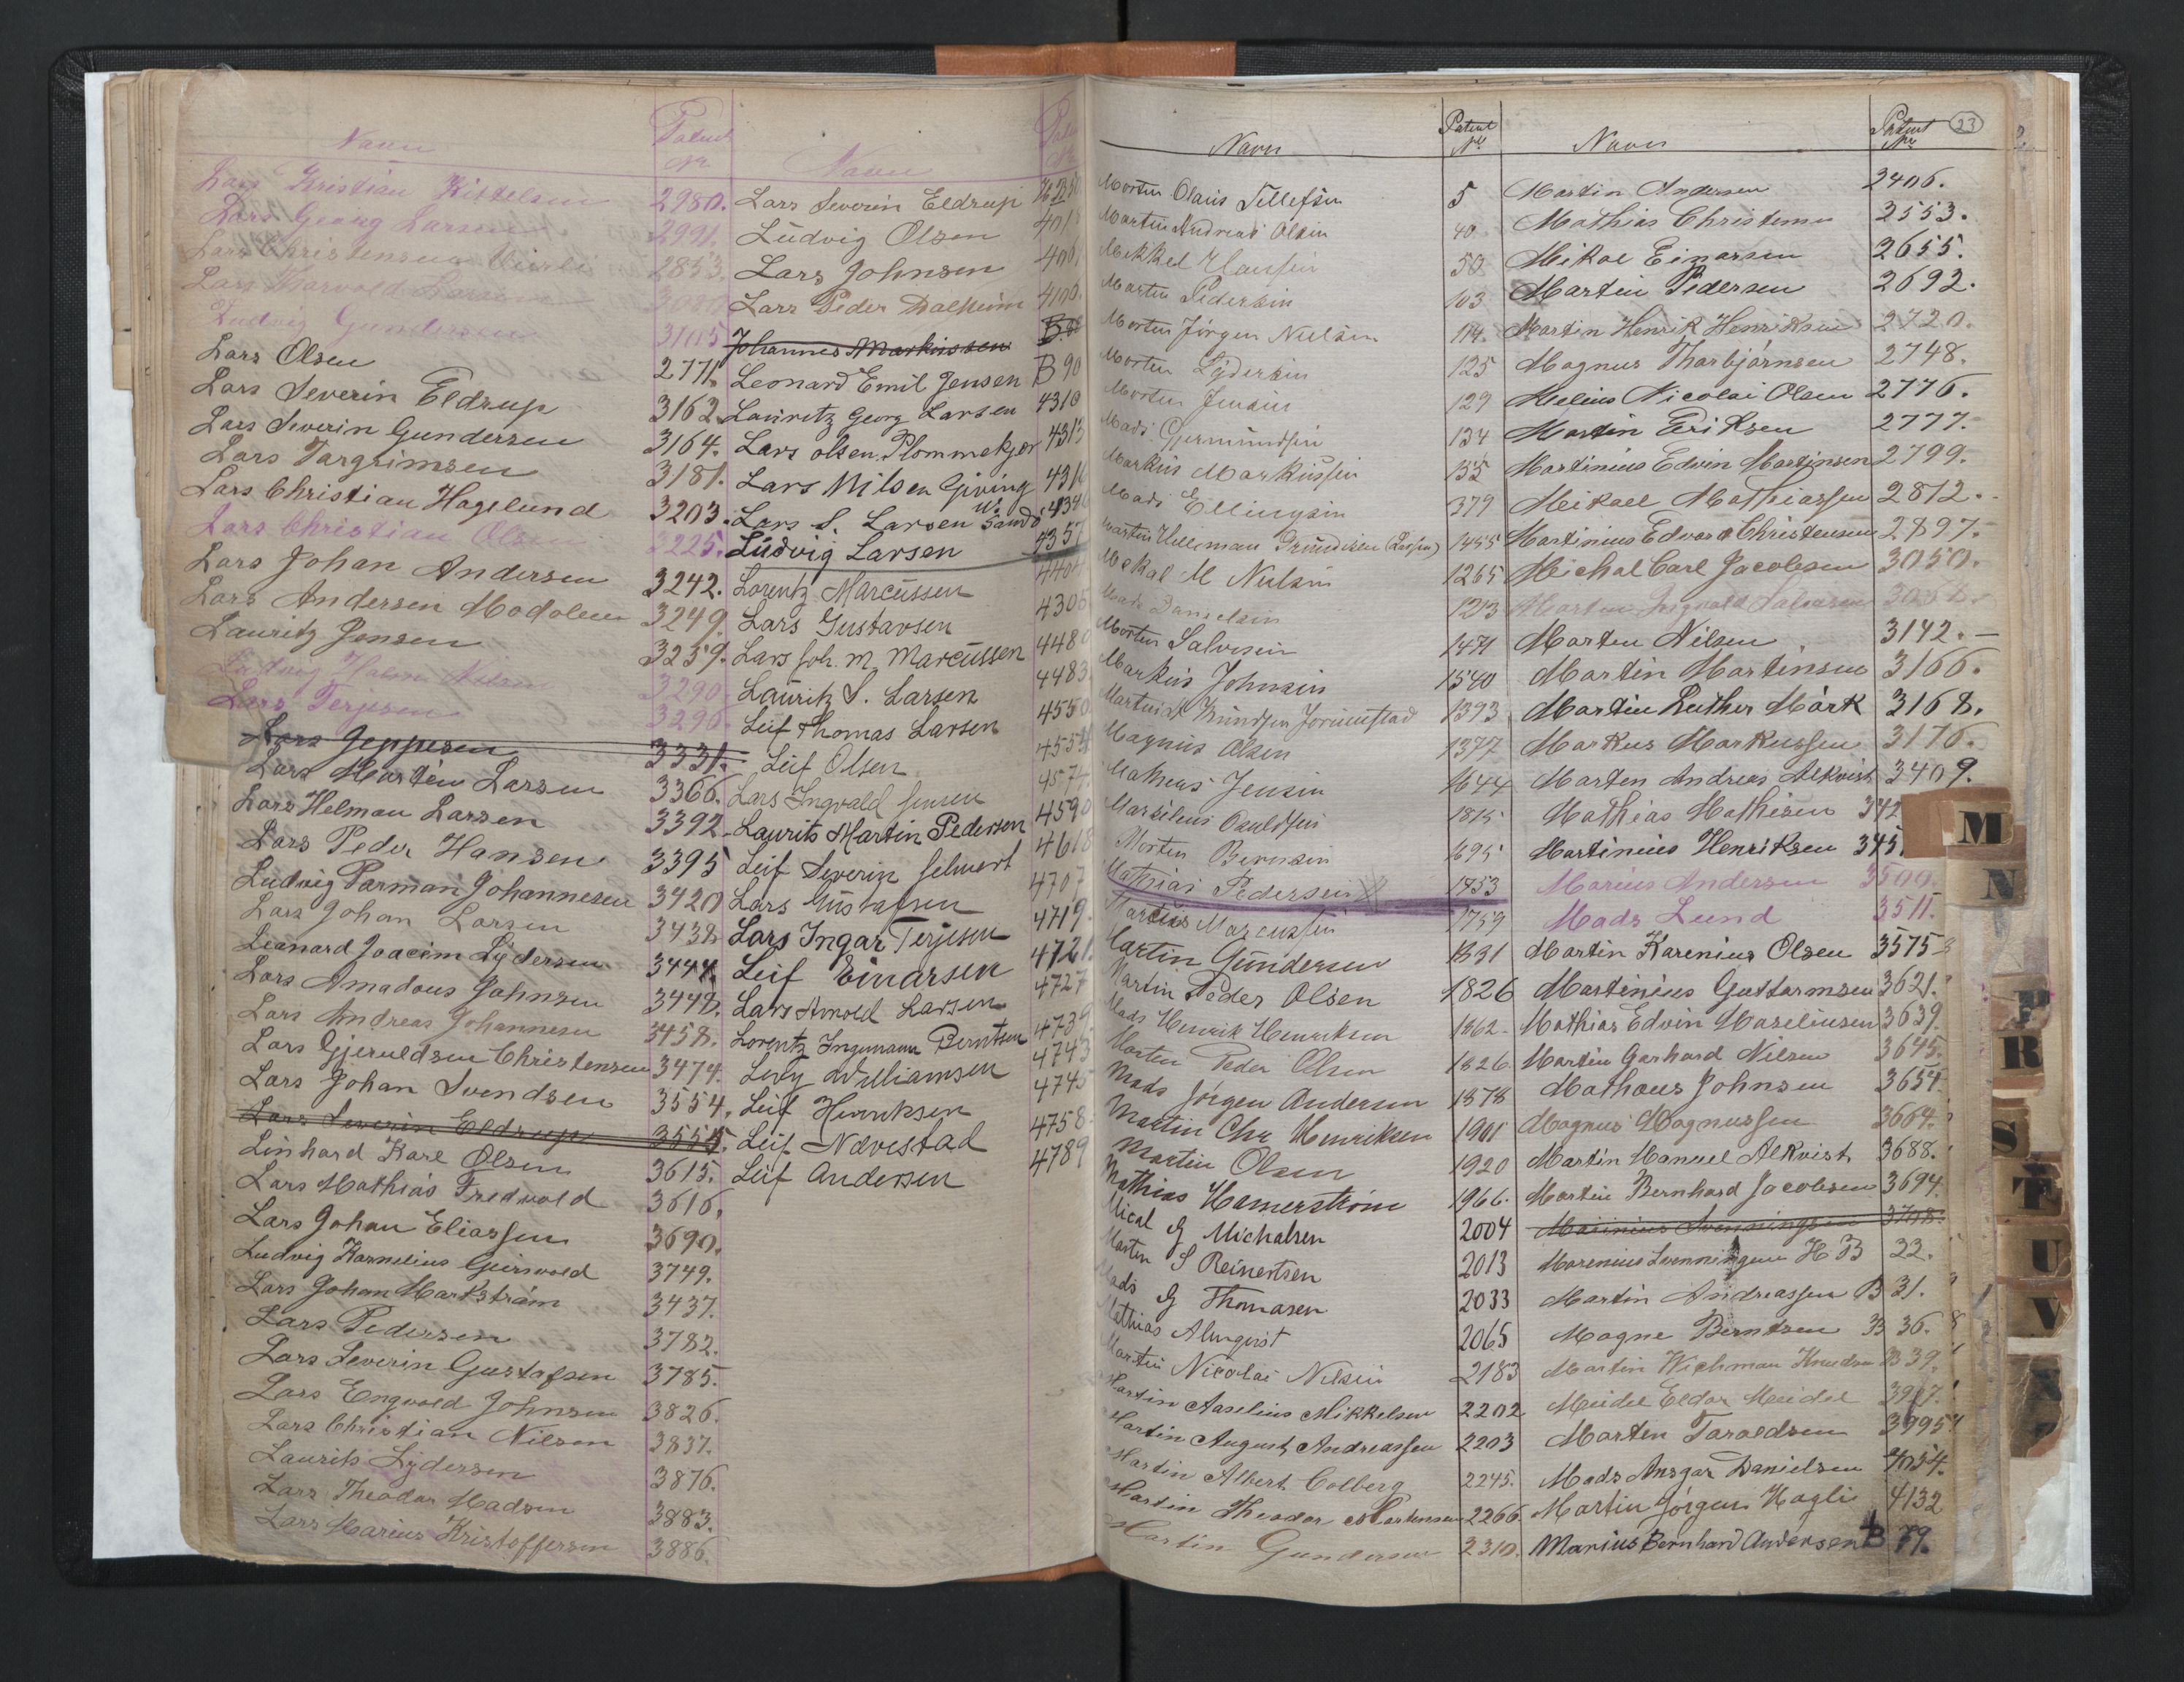 Navn Patent Nr
Lars Kristian Kittelsen 2980.
Lars Georg Larsen 2991.
Lars Christensen 2853.
Lars Harvald Larsen 3080
Ludvig Gundersen 3105
Lars Olsen 2771.
Lars Severin Eldrup 3162.
Lars Severin Gundersen 3164.
Lars Targrimsen 3181.
Lars Christian Hagelund 3203.
Lars Christian Olsen 3225.
Lars Johan Andersen 3242.
Lars Andersen Modalen 3249.
Lauritz Jensen 3259.
Ludvig 3290
Lars Terjesen 3296.
Lars Jeppesen 3331.
Lars Martin Larsen 3366.
Lars Helman Larsen 3392.
Lars Peder Hansen 3395
Ludvig Parman Johannesen 3420
Lars Johan Larsen 3438
Leonard Joacim Lydersen 3444.
Lars Amadous Johnsen 3448.
Lars Andreas Johannesen 3458.
Lars Gjeruldsen Christensen 3474.
Lars Johan Svendsen 3554.
Lars Severin Eldrup 3555.
Linhard Karl Olsen 3615.
Lars Mathias Fredvold 3616.
Lars Johan Eliassen 3690.
Ludvig Kornelius Geirsvold 3749.
Lars Johan Markstrøm 3437.
Lars Pedersen 3782.
Lars Severin Gustafsen 3785.
Lars Engvold Johnsen 3826.
Lars Christian Nilsen 3837.
Laurits Lydersen 3876.
Lars Theodor Madsen 3883.
Lars Marius Kristoffersen 3886.
Navn
Lars Severin Eldrup
Ludvig Olsen
Lars Johnsen
Lars Peder Dalheim 4100.
Johannes Markussen
Leonard Emil Jensen B 90
Lauritz Georg Larsen 4310
Lars Olsen Plommekjær 4313
Lars Nilsen Giving
Lars S. Larsen Sandø
Ludvig Larsen 4357
Lorentz Marcussen 4404
Lars Gustavsen 4305
Lars Joh. M. Marcussen 4480
Lauritz S. Larsen 4483
Leif Thomas Larsen 4550
Leif Olsen 4554
Lars Ingvald Jensen 4574
Laurits Martin Pedersen 4590
Leif Severin Selmert 4618
Lars Gustafsen 4707
Lars Ingar Terjesen 4719.
Leif Einarsen 4721.
Lars Arnold Larsen 4727
Lorentz Ingemann Berntsen 4739
Levy Williamsen 4743
Leif Henriksen 4745
Leif Nævestad 4758
Leif Andersen 4789
Navn Patent Nr
Morten Olaus Tellefsen 5
Martin Andreas Olsen 40
Mekkel Hansen 50
Morten Pedersen 103
Morten Jørgen Nielsen 114.
Morten Lydersen 125
Morten Jensen 129
Mads Germundsen 134
Markus Markussen 155
Mads Ellingsen 379
Martin Helleman Gundersen (Larsen) 1455
Mekal M Nielsen 1265
Mads Danielsen 1213
Morten Salvesen 1471
Markus Johnsen 1540
Martin Knudsen Jorunstad 1393
Magnus Olsen 1377
Matheus Jensen 1644
Marselius Osuldsen 1815
Morten Berensen 1695
Mathias Pedersen 1753
Marcus Marcussen 1759
Martin Gundersen 1831
Martin Peder Olsen 1826
Mads Henrik Henriksen 1862.
Morten Peder Olsen 1826.
Mads Jørgen Andersen 1878
Martin Chr Henriksen 1901
Martin Olsen 1920
Mathias Hamerstrøm 1966.
Mical G Michalsen 2004
Morten S Reinertsen 2013
Mads G Thomasen 2033
Mathias Almqvist 2065
Martin Nicolai Nilsen 2183
Martin Aaselius Mikkelsen 2202
Martin August Andreassen 2203
Martin Albert Colberg 2245.
Martin Theodor Mortensen 2266.
Martin Gundersen 2310.
Navn Patent Nr 23
Martin Andersen 2406.
Mathias Christensen 2553.
Mikal Einarsen 2655.
Martin Pedersen 2692.
Martin Henrik Henriksen 2720.
Magnus Tharbjørnsen 2748.
Melius Nicolai Olsen 2776.
Martin Eriksen 2777.
Martinius Edvin Martinsen 2799.
Mikael Mathiassen 2812.
Martinius Edvard Christensen 2897.
Michal Carl Jacobsen 3050.
Morten Ingvald Salvesen
Morten Nilsen 3142.
Martin Martinsen 3166.
Martin Luther Mørk 3168.
Markus Markussen 3176.
Morten Andreas Alkvist 3409.
Mathias Mathisen 342
Martinius Henriksen 345
Marius Andersen 3509.
Mads Lund 3511.
Martin Karenius Olsen 3575
Martinius Guttormsen 3621.
Mathias Edvin Maseliusen 3639.
Martin Gerhard Nilsen 3645.
Mathæus Johnsen 3654.
Magnus Magnussen 3664.
Martin Manuel Alkvist 3688.
Martin Bernhard Jacobsen 3694.
Marinius Svenningsen 3708.
Morenius Svenningsen H B 22.
Martin Andreassen B 31.
Magne Berntsen B 36.
Martin Wichman Knudsen B 39.
Meidel Eldar Meidel 3917.
Morten Taraldsen 3995
Mads Ansgar Danielsen 4054.
Martin Jørgen Hagli 4132
Marius Bernhard Andersen B 79.
M
N
P
R
S
T
U
V